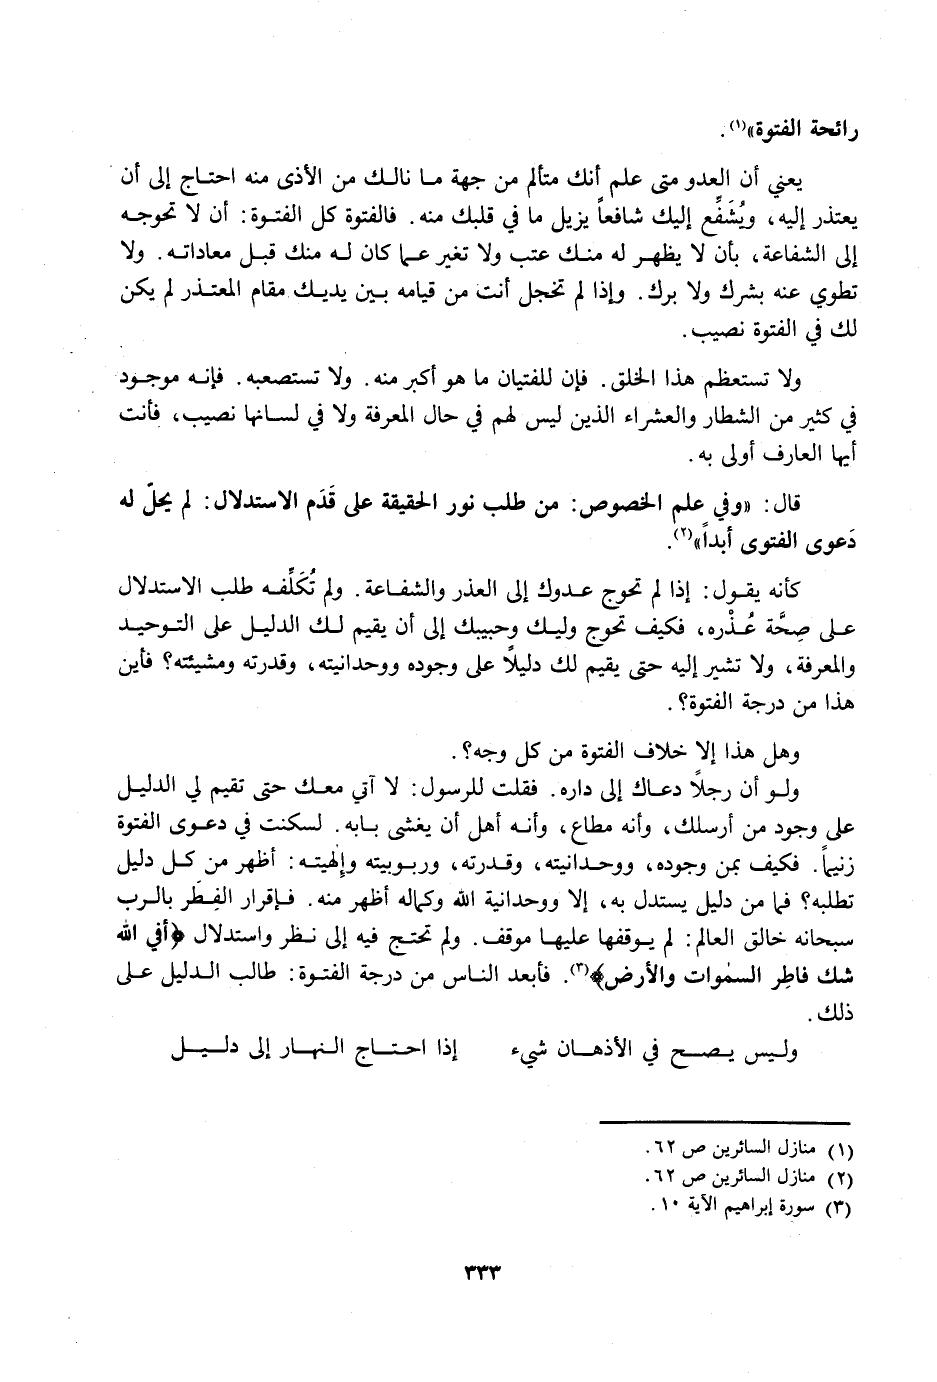 رائحة الفتوة»(١).
يعني أن العدو متى علم أنك متألم من جهة ما نالك من الأذى منه احتاج إلى أن
يعتذر إليه، ويُشَفِّع إليك شافعاً يزيل ما في قلبك منه. فالفتوة كل الفتوة: أن لا تحوجه
إلى الشفاعة، بأن لا يظهر له منك عتب ولا تغير عما كان له منك قبل معاداته. ولا
تطوي عنه بشرك ولا برك. وإذا لم تخجل أنت من قيامه بين يديك مقام المعتذر لم يكن
لك في الفتوة نصيب.
ولا تستعظم هذا الخلق. فإن للفتيان ما هو أكبر منه. ولا تستصعبه. فإنه موجود
في كثير من الشطار والعشراء الذين ليس لهم في حال المعرفة ولا في لسانها نصيب، فأنت
أيها العارف أولى به.
قال: «وفي علم الخصوص: من طلب نور الحقيقة على قَدَم الاستدلال: لم يحلّ له
دَعوى الفتوى أبداً»(٢).
كأنه يقول: إذا لم تحوج عدوك إلى العذر والشفاعة. ولم تُكَلِّفه طلب الاستدلال
على صِحَّة عُذْره، فكيف تحوج وليك وحبيبك إلى أن يقيم لك الدليل على التوحيد
والمعرفة، ولا تشير إليه حتى يقيم لك دليلاً على وجوده ووحدانيته، وقدرته ومشيئته؟ فأين
هذا من درجة الفتوة؟.
وهل هذا إلا خلاف الفتوة من كل وجه؟.
ولو أن رجلاً دعاك إلى داره. فقلت للرسول: لا آتي معك حتى تقيم لي الدليل
على وجود من أرسلك، وأنه مطاع، وأنه أهل أن يغشى بابه. لسكنت في دعوى الفتوة
زنيماً. فكيف بمن وجوده، ووحدانيته، وقدرته، وربوبيته وإلهيته: أظهر من كل دليل
تطلبه؟ فما من دليل يستدل به، إلا ووحدانية الله وكماله أظهر منه. فإقرار الفِطَر بالرب
سبحانه خالق العالم: لم يوقفها عليها موقف. ولم تحتج فيه إلى نظر واستدلال ﴿أفي الله
شك فاطِر السمٰوات والأرض﴾(٣). فأبعد الناس من درجة الفتوة: طالب الدليل على
ذلك.
وليس يصح في الأذهان شيء إذا احتاج النهار إلى دليل
(١) منازل السائرين ص ٦٢.
(٢) منازل السائرين ص ٦٢.
(٣) سورة إبراهيم الآية ١٠.
٣٣٣